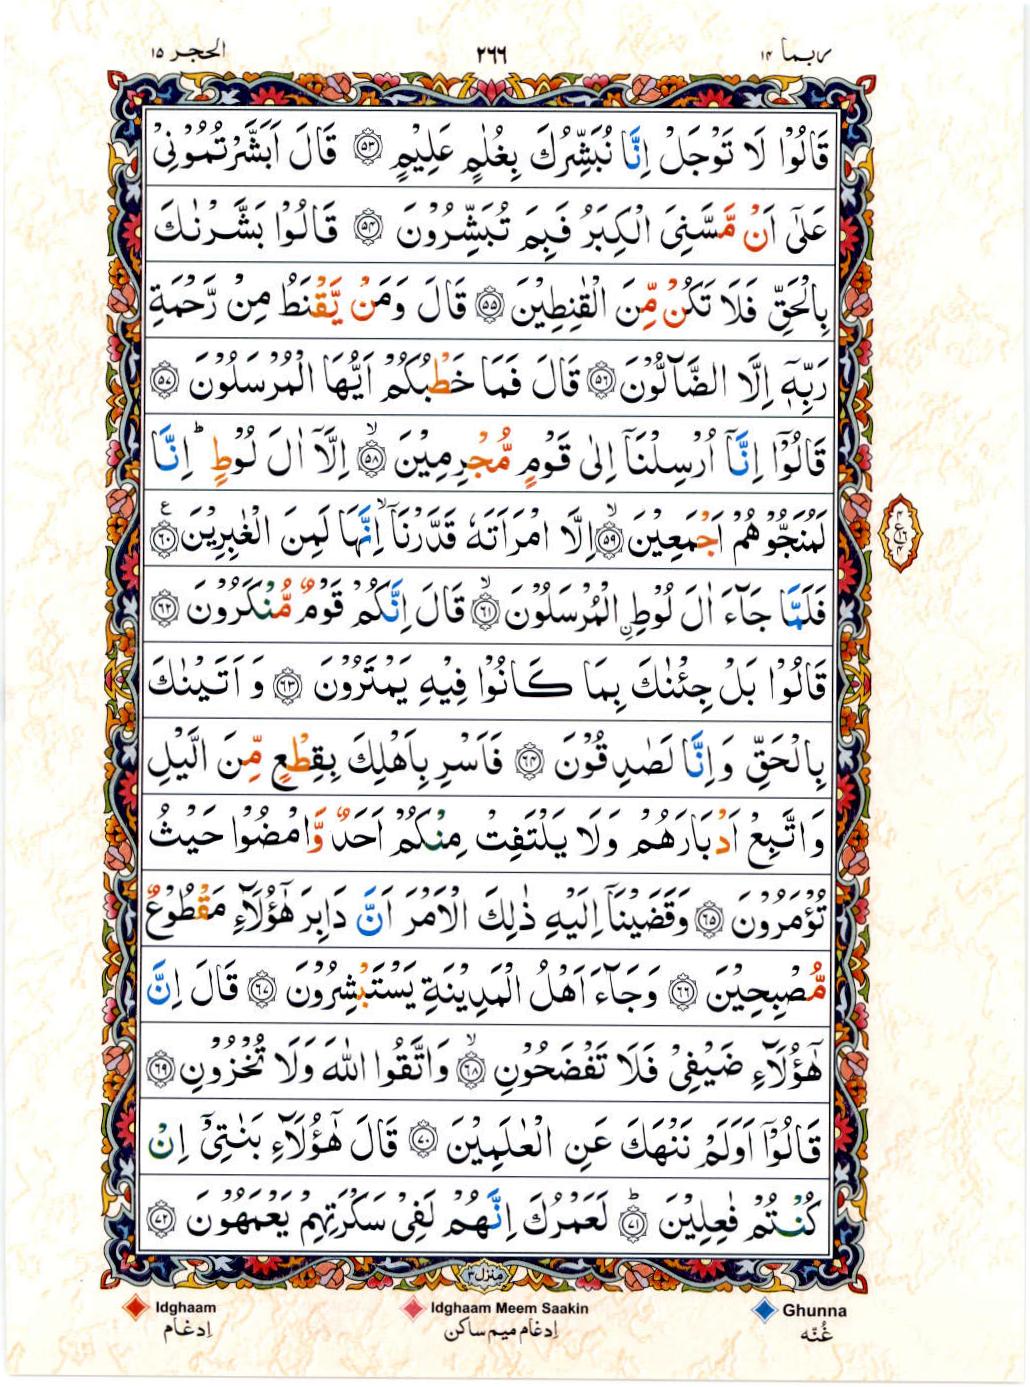 ربما ١٤
٢٦٦
الحجر ١٥
قَالُوْا لَا تَوْجَلْ اِنَّا نُبَشِّرُكَ بِغُلٰمٍ عَلِيْمٍ ﴿۵۳﴾ قَالَ اَبَشَّرْتُمُوْنِیْ
عَلٰۤی اَنْ مَّسَّنِیَ الْكِبَرُ فَبِمَ تُبَشِّرُوْنَ ﴿۵۴﴾ قَالُوْا بَشَّرْنٰكَ
بِالْحَقِّ فَلَا تَكُنْ مِّنَ الْقٰنِطِيْنَ ﴿۵۵﴾ قَالَ وَمَنْ يَّقْنَطُ مِنْ رَّحْمَةِ
رَبِّهٖۤ اِلَّا الضَّآلُّوْنَ ﴿۵۶﴾ قَالَ فَمَا خَطْبُكُمْ اَيُّهَا الْمُرْسَلُوْنَ ﴿۵۷﴾
قَالُوْۤا اِنَّاۤ اُرْسِلْنَاۤ اِلٰی قَوْمٍ مُّجْرِمِيْنَ ﴿۵۸﴾ۙ اِلَّاۤ اٰلَ لُوْطٍ ؕ اِنَّا
لَمُنَجُّوْهُمْ اَجْمَعِيْنَ ﴿۵۹﴾ۙ اِلَّا امْرَاَتَهٗ قَدَّرْنَاۤ ۙ اِنَّهَا لَمِنَ الْغٰبِرِيْنَ ﴿۶۰﴾ ع
فَلَمَّا جَآءَ اٰلَ لُوْطِ ِ۟الْمُرْسَلُوْنَ ﴿۶۱﴾ۙ قَالَ اِنَّكُمْ قَوْمٌ مُّنْكَرُوْنَ ﴿۶۲﴾
قَالُوْا بَلْ جِئْنٰكَ بِمَا كَانُوْا فِيْهِ يَمْتَرُوْنَ ﴿۶۳﴾ وَاَتَيْنٰكَ
بِالْحَقِّ وَاِنَّا لَصٰدِقُوْنَ ﴿۶۴﴾ فَاَسْرِ بِاَهْلِكَ بِقِطْعٍ مِّنَ الَّيْلِ
وَاتَّبِعْ اَدْبَارَهُمْ وَلَا يَلْتَفِتْ مِنْكُمْ اَحَدٌ وَّامْضُوْا حَيْثُ
تُؤْمَرُوْنَ ﴿۶۵﴾ وَقَضَيْنَاۤ اِلَيْهِ ذٰلِكَ الْاَمْرَ اَنَّ دَابِرَ هٰۤؤُلَآءِ مَقْطُوْعٌ
مُّصْبِحِيْنَ ﴿۶۶﴾ وَجَآءَ اَهْلُ الْمَدِيْنَةِ يَسْتَبْشِرُوْنَ ﴿۶۷﴾ قَالَ اِنَّ
هٰۤؤُلَآءِ ضَيْفِیْ فَلَا تَفْضَحُوْنِ ﴿۶۸﴾ۙ وَاتَّقُوا اللّٰهَ وَلَا تُخْزُوْنِ ﴿۶۹﴾
قَالُوْۤا اَوَلَمْ نَنْهَكَ عَنِ الْعٰلَمِيْنَ ﴿۷۰﴾ قَالَ هٰۤؤُلَآءِ بَنٰتِیْۤ اِنْ
كُنْتُمْ فٰعِلِيْنَ ﴿۷۱﴾ؕ لَعَمْرُكَ اِنَّهُمْ لَفِیْ سَكْرَتِهِمْ يَعْمَهُوْنَ ﴿۷۲﴾
منزل ۳
Idghaam
Idghaam Meem Saakin
Ghunna
اِدغام
اِدغام ميم ساكن
غُنّه